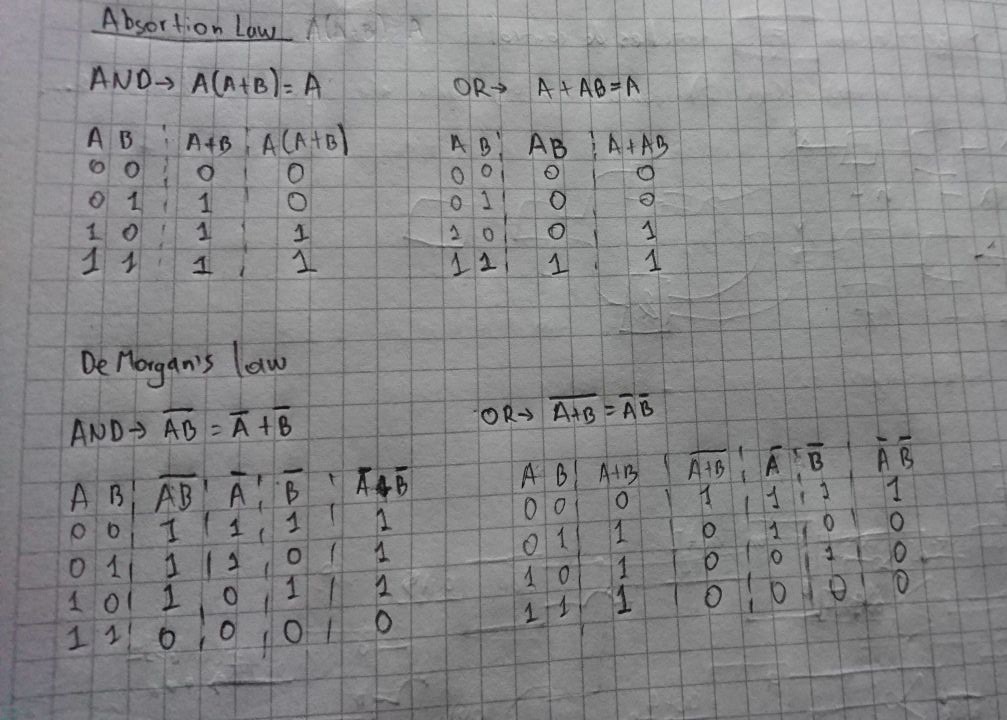 Absortion Law A(A+B)=A
AND→ A(A+B)= A
A B A+B A(A+B)
0 0 0 0
0 1 1 0
1 0 1 1
1 1 1 1
OR→ A+AB=A
A B AB A+AB
0 0 0 0
0 1 0 0
1 0 0 1
1 1 1 1
De Morgan's law
AND→ A̅B̅ = A̅ + B̅
A B A̅B̅ A̅ B̅ A̅+B̅
0 0 1 1 1 1
0 1 1 1 0 1
1 0 1 0 1 1
1 1 0 0 0 0
OR→ A̅+̅B̅ = A̅ B̅
A B A+B A̅+̅B̅ A̅ B̅ A̅ B̅
0 0 0 1 1 1 1
0 1 1 0 1 0 0
1 0 1 0 0 1 0
1 1 1 0 0 0 0